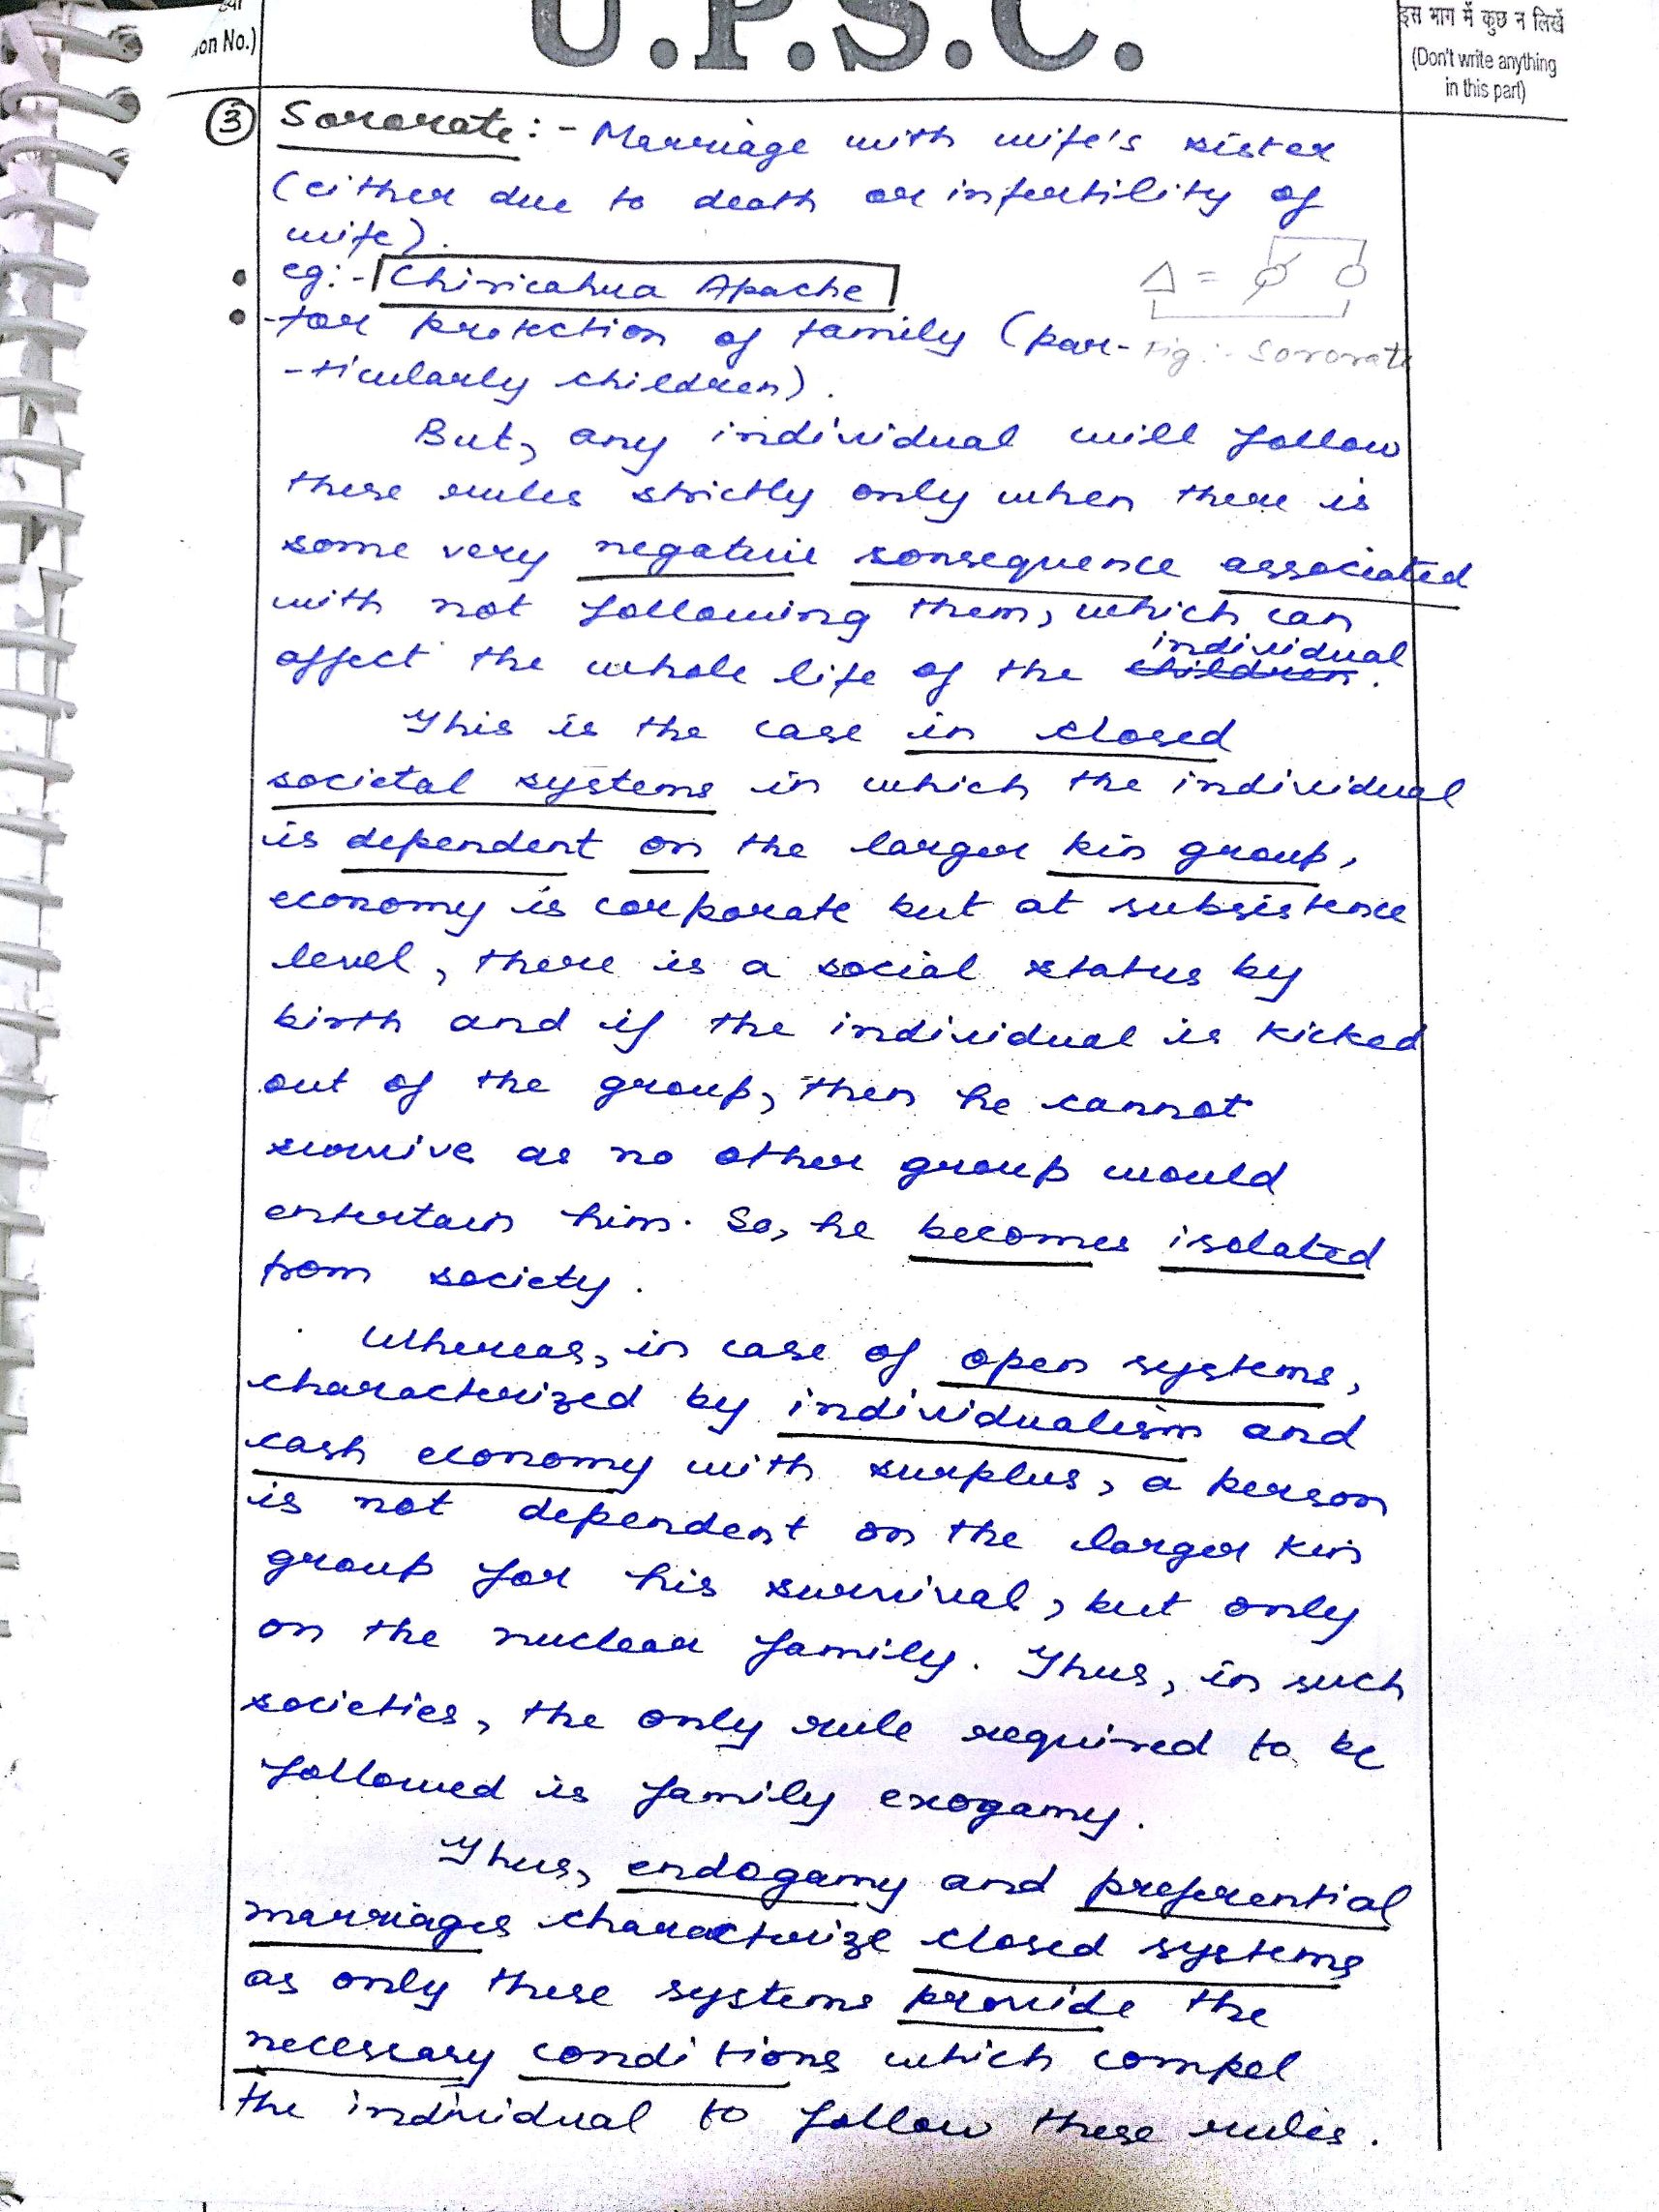 U.P.S.C.
ion No.)
इस भाग में कुछ न लिखें
(Don't write anything
in this part)
③ Sororate :- Marriage with wife's sister
(either due to death or infertility of
wife).
eg:- Chiricahua Apache
Δ = Ø O
- for protection of family (par-
fig :- Sororate
-ticularly children).
But, any individual will follow
these rules strictly only when there is
some very negative consequence associated
with not following them, which can
individual
affect the whole life of the children.
This is the case in closed
societal systems in which the individual
is dependent on the larger kin group,
economy is corporate but at subsistence
level, there is a social status by
birth and if the individual is kicked
out of the group, then he cannot
survive as no other group would
entertain him. So, he becomes isolated
from society.
Whereas, in case of open systems,
characterized by individualism and
cash economy with surplus, a person
is not dependent on the larger kin
group for his survival, but only
on the nuclear family. Thus, in such
societies, the only rule required to be
followed is family exogamy.
Thus, endogamy and preferential
marriages characterize closed systems
as only these systems provide the
necessary conditions which compel
the individual to follow these rules.